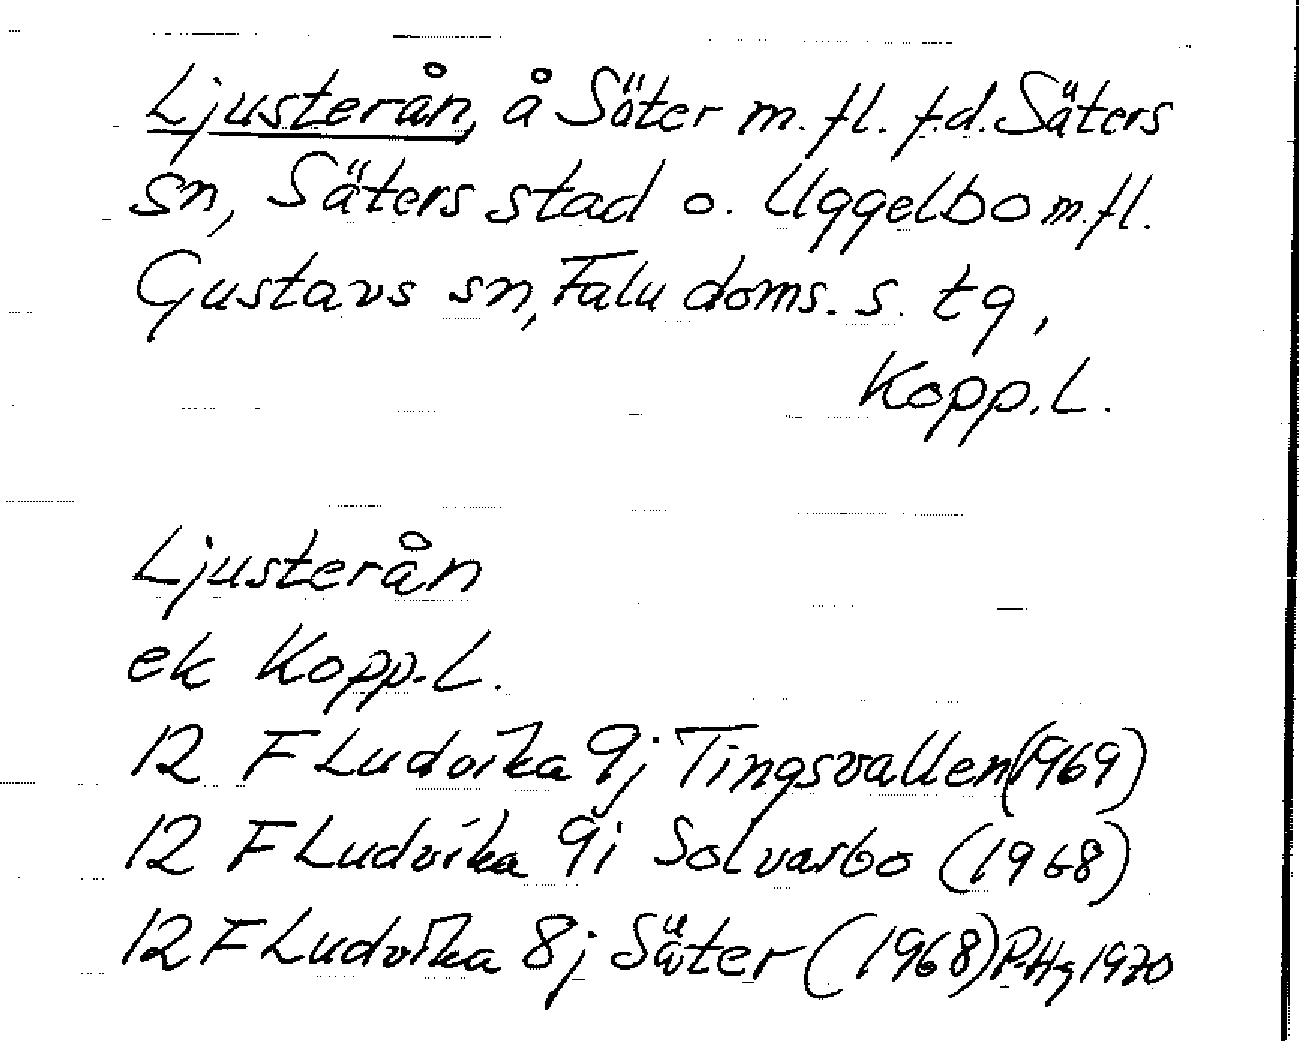 Ljusterån, å Säter m.fl. f.d. Säters
sn, Säters stad o. Uggelbo m.fl.
Gustavs sn, Falu doms. s. tg,
Kopp.L.
Ljusterån
ek Kopp.L.
12 F Ludvika 9j Tingsvallen (1969)
12 F Ludvika 9i Solvarbo (1968)
12 F Ludvika 8j Säter (1968) P.Hg 1970